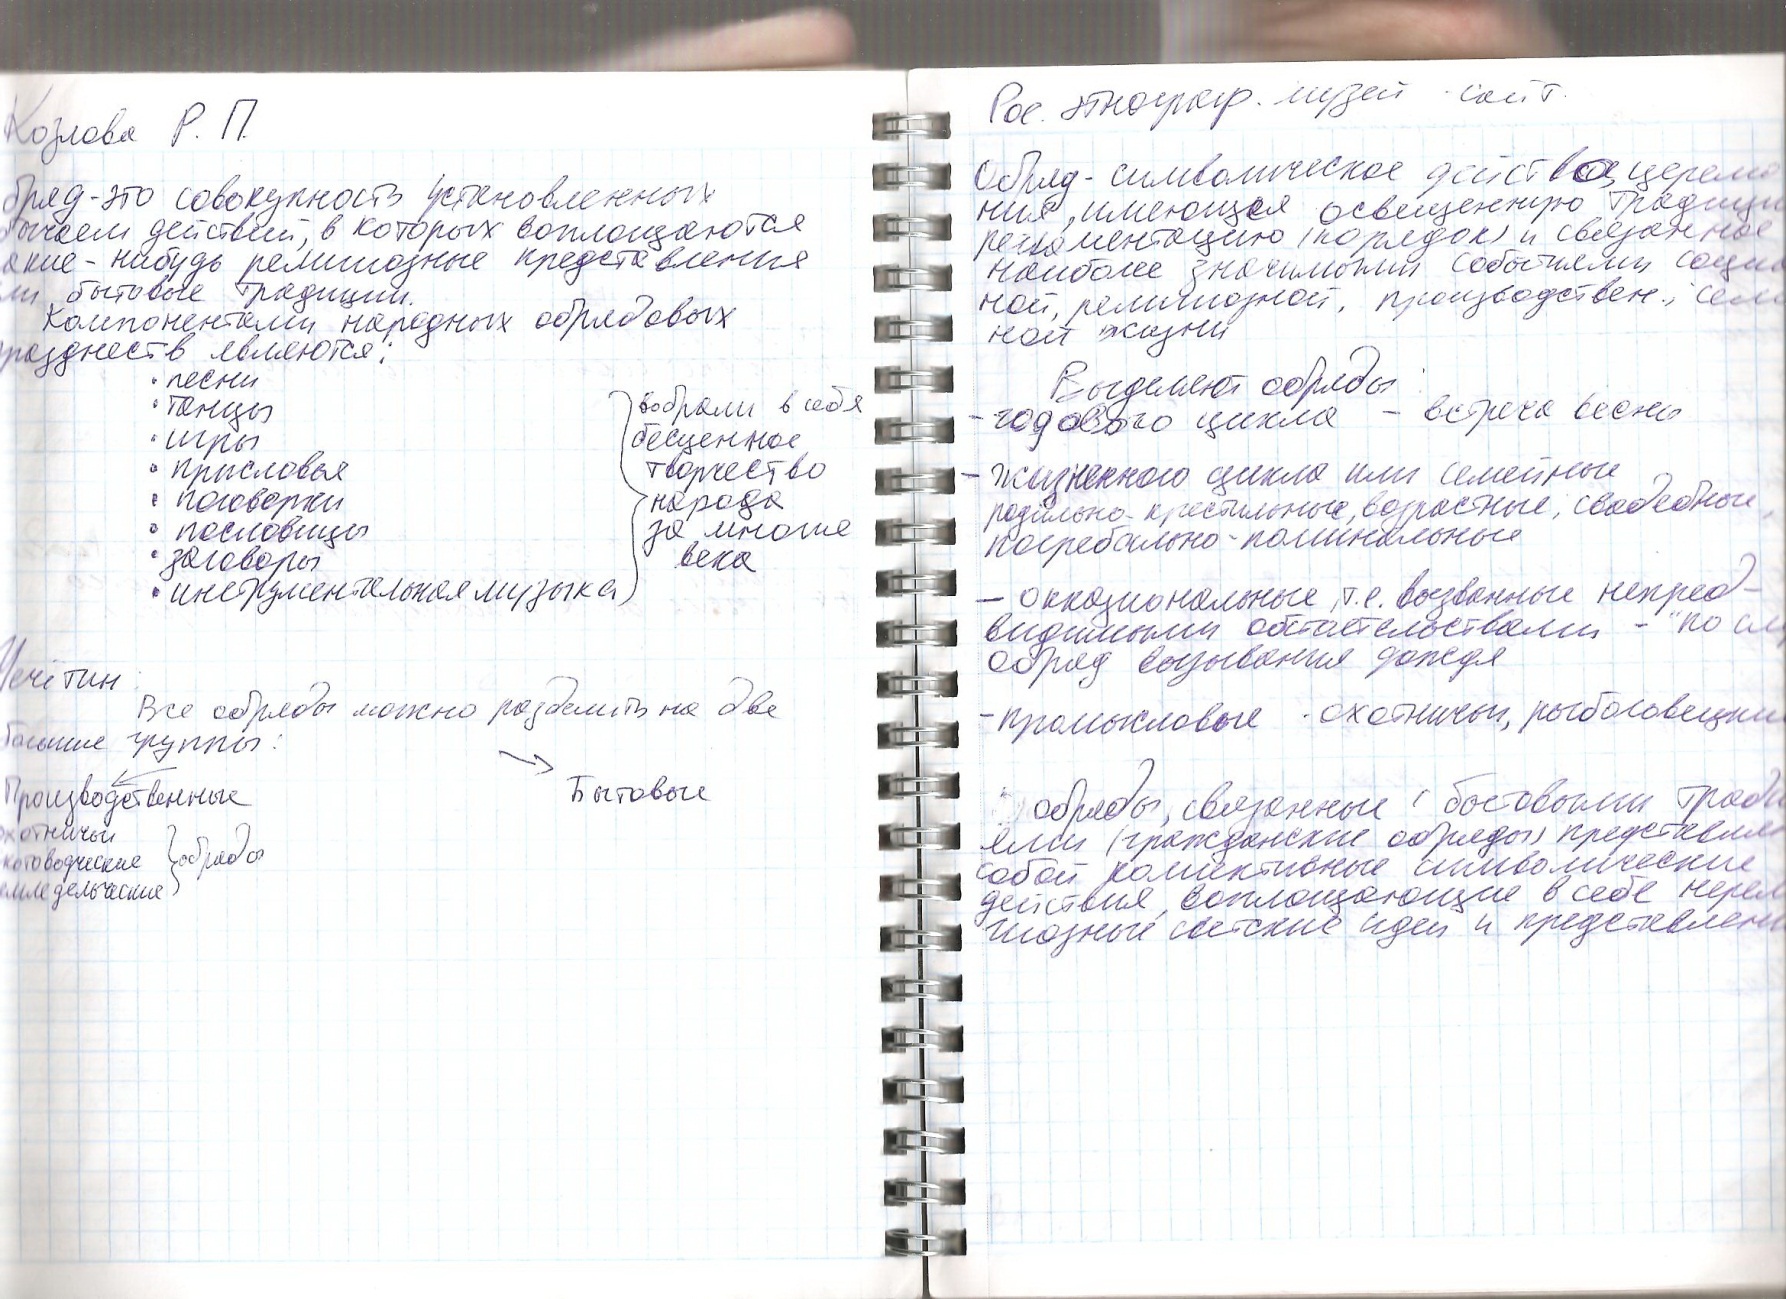 Козлова Р. П.
бряд - это совокупность установленных
бычаем действий, в которых воплощаются
акие-нибудь религиозные представления
ли бытовые традиции.
Компонентами народных обрядовых
празднеств являются:
• песни
• танцы
• игры
• присловья
• поговорки
• пословицы
• заговоры
• инструментальная музыка
вобрали в себя
бесценное
творчество
народа
за многие
века
Чечётин:
Все обряды можно разделить на две
большие группы:
Производственные
хотничьи
котоводческие
емледельческие
обряды
Бытовые
Рос. этнограф. музей - сайт.
Обряд - символическое действо, церемо
ния, имеющая освещенную традици
регламентацию (порядок) и связанное
наиболее значимыми событиями социа
ной, религиозной, производствен., семе
ной жизни
Выделяют обряды:
- годового цикла - встреча весны
- жизненного цикла или семейные
родильно-крестильные, возрастные, свадебные,
погребально-поминальные
- окказиональные, т.е. вызванные непред-
видимыми обстоятельствами - "по сл
обряд вызывания дождя
- промысловые - охотничьи, рыболовецкие
обряды, связанные с бытовыми тради
ями (гражданские обряды) представляю
собой колективные символические
действия, воплощающие в себе нерели
гиозные светские идеи и представлени